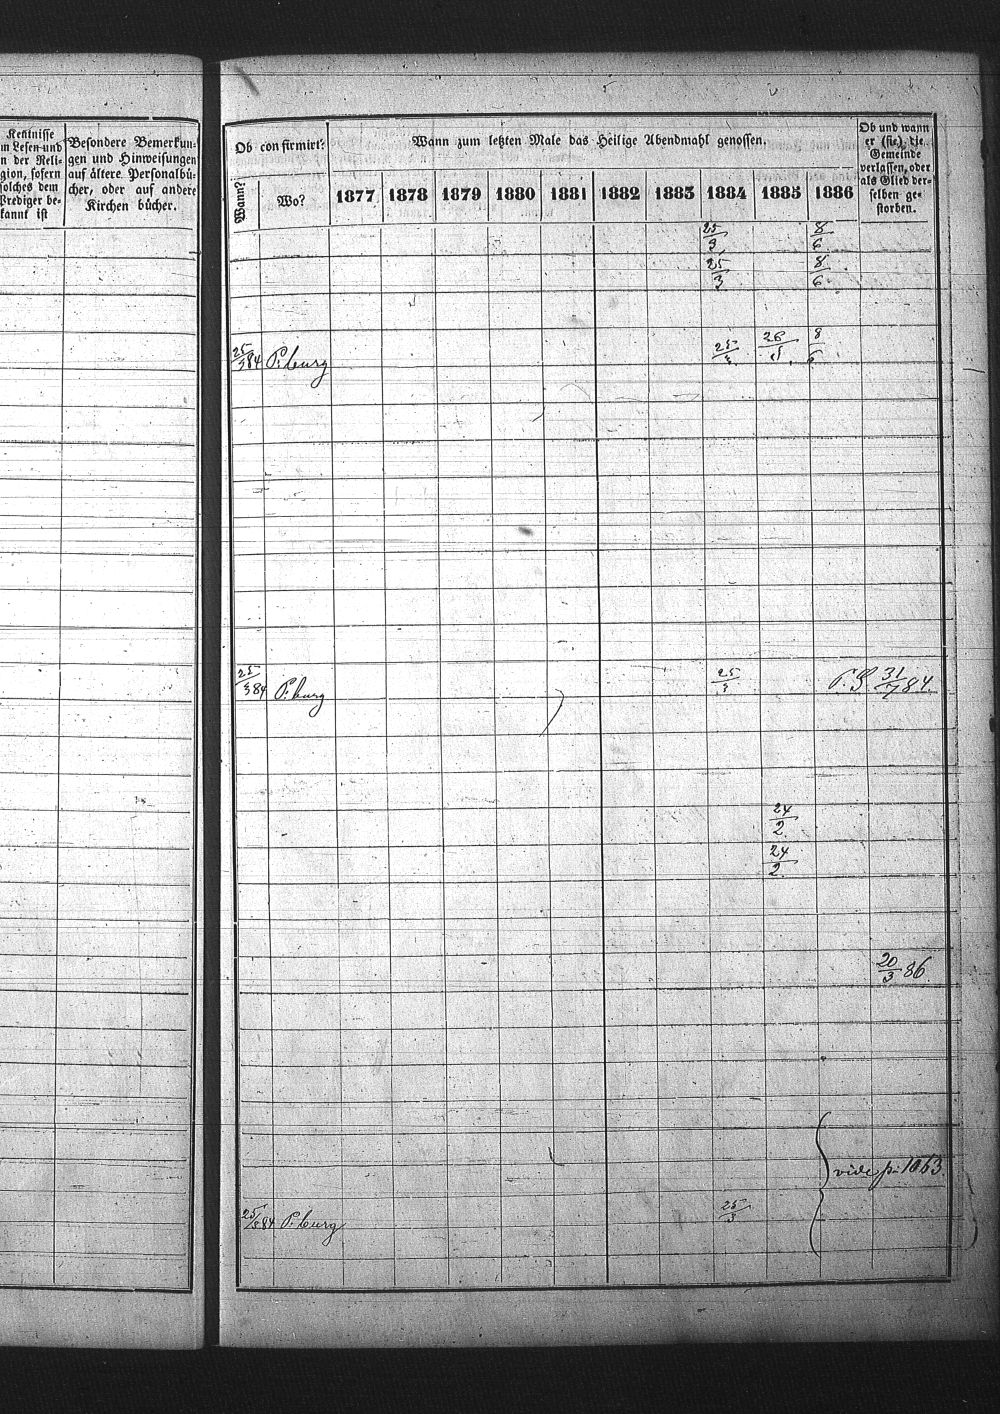 Kentnisse
m Lesen und
n der Reli-
gion, sofern
solches dem
Prediger be-
kannt ist
Besondere Bemerkun-
gen und Hinweisungen
auf ältere Personalbü-
cher, oder auf andere
Kirchen bücher.
Ob confirmirt?
Wann?
Wo?
Wann zum letzten Male das Heilige Abendmahl genossen.
1877 1878 1879 1880 1881 1882 1883 1884 1885 1886
Ob und wann
er (sie) die
Gemeinde
verlassen, oder
als Glied der-
selben ge-
storben.
25/3 8/6
25/3 8/6
25/3 84 P.burg 25/3 26/ 8/6
25/3 84 P.burg 25/3 31/7 84.
24/2.
24/2.
20/3 86.
vide p. 1053.
25/3 84 P.burg 25/3